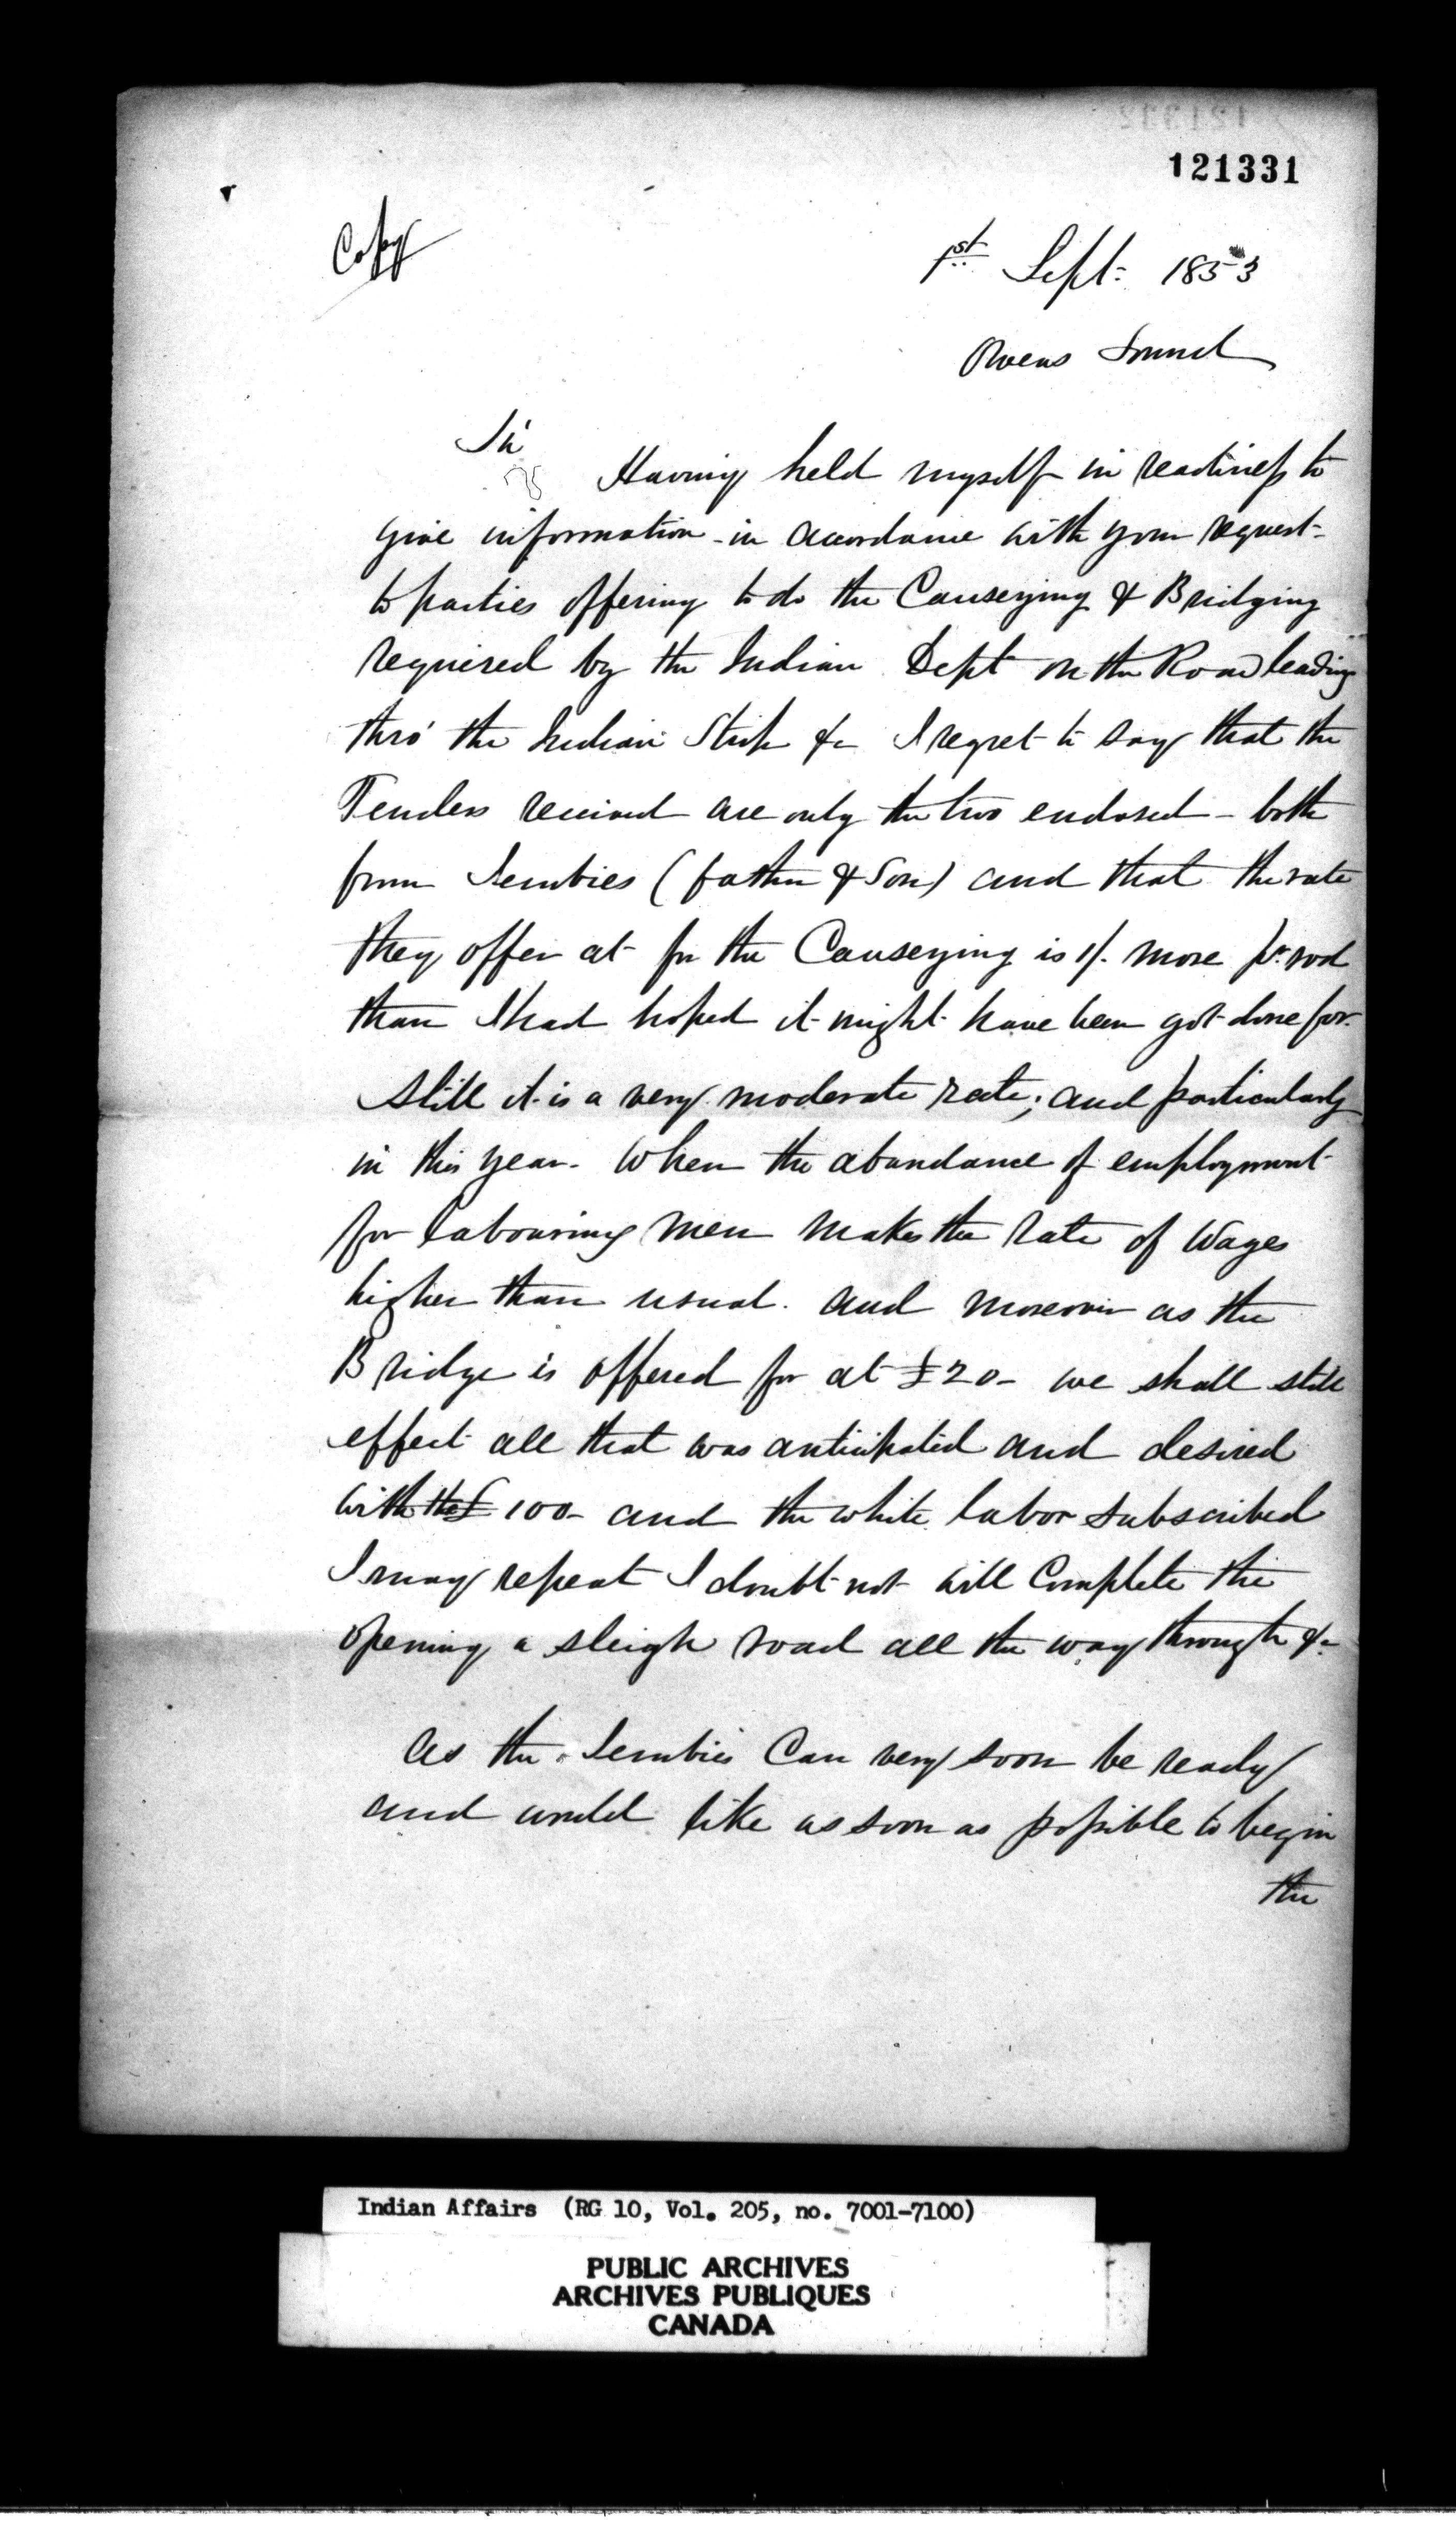 121331
Copy
1st Sept: 1853
Owens Sound
Sir
Having held myself in readiness to
give information - in accordance with your request -
to parties offering to do the Causeying & Bridging
required by the Indian Dept on the Road leading
thro' the Indian Strip &c I regret to say that the
Tenders received are only the two enclosed - both
from (father & Son) and that the rate
they offer at for the Causeying is 1/. more pr. rod
than I had hoped it might have been got done for.
Still it is a very moderate rate; and particularly
in this year. When the abundance of employment
for labouring men makes the rate of Wages
higher than usual. and moreover as the
Bridge is offered for at £20- we shall still
effect all that was anticipated and desired
with the £100- and the white labor subscribed
I may repeat I doubt not will Complete the
opening a sleigh road all the way through &c
As the Can very soon be ready
and would like as soon as possible to begin
the
Indian Affairs (RG 10, Vol. 205, no. 7001-7100)
PUBLIC ARCHIVES
ARCHIVES PUBLIQUES
CANADA